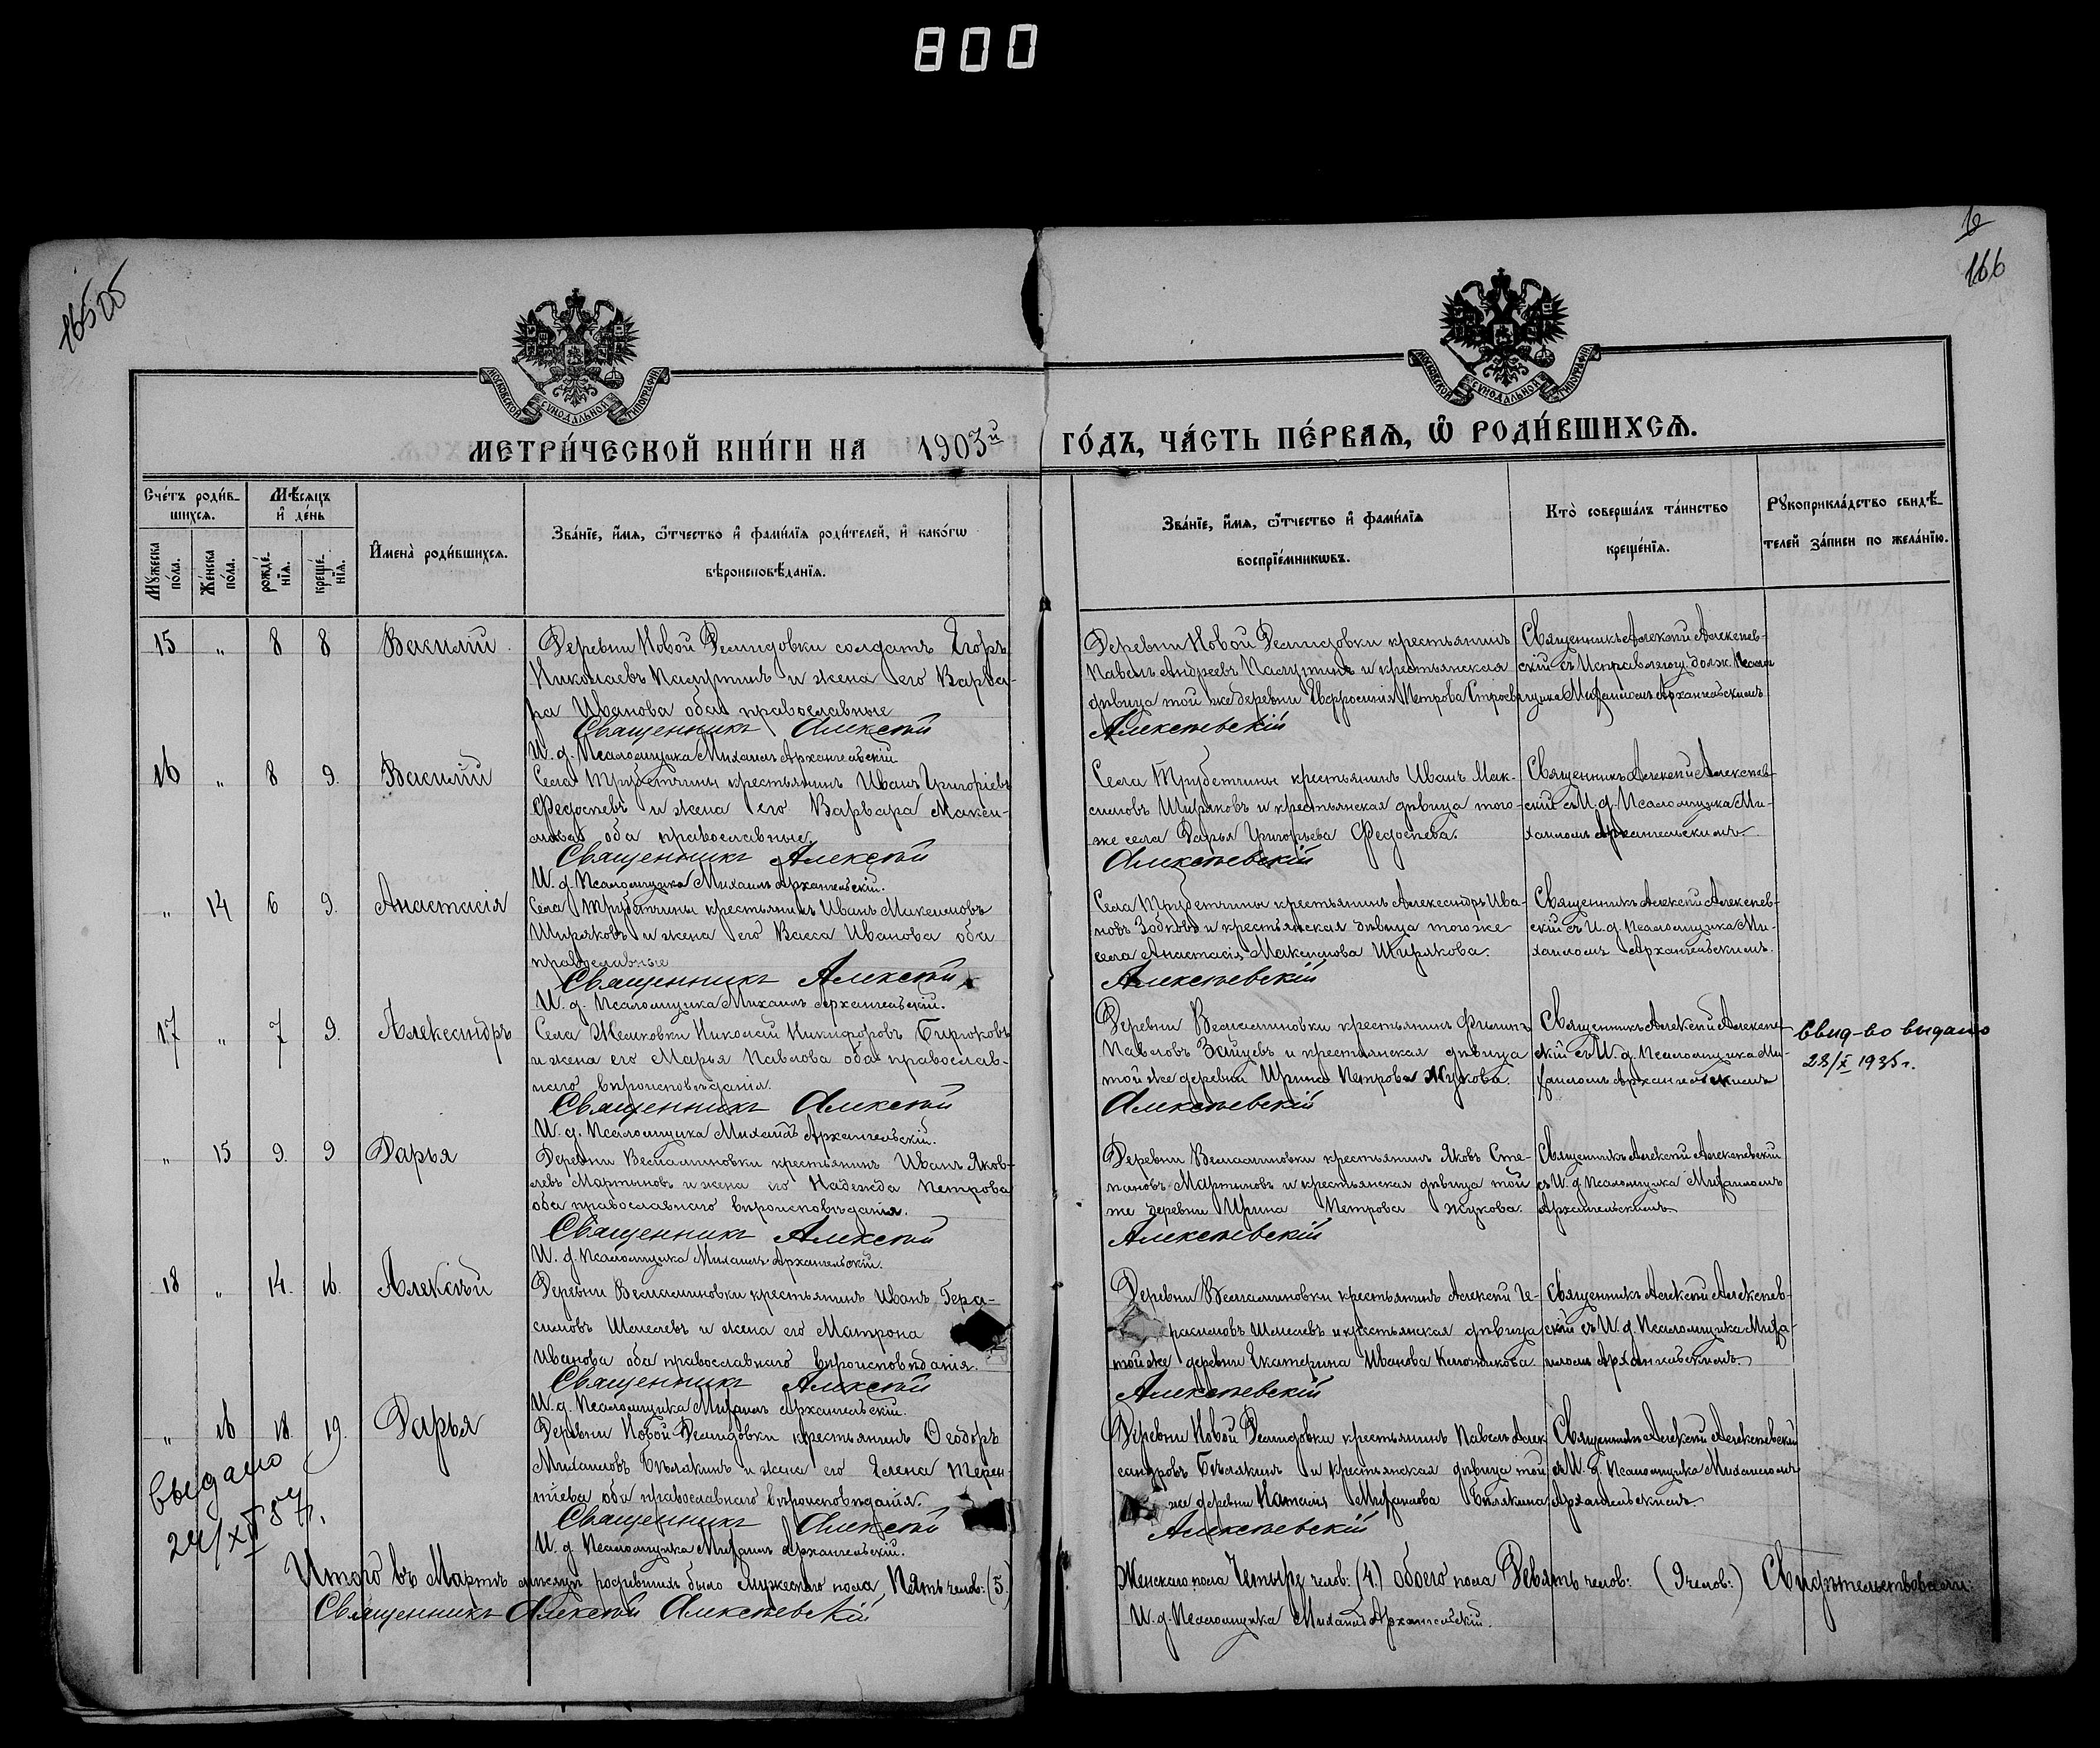 800
165об
16
166
МОСКОВСКОЙ СѴНОДАЛЬНОЙ ТИПОГРАФІИ
МОСКОВСКОЙ СѴНОДАЛЬНОЙ ТИПОГРАФІИ
МЕТРИ́ЧЕСКОЙ КНИ́ГИ НА 1903й ГО́ДЪ, ЧА́СТЬ ПЕ́РВАѦ, Ѡ РОДИ́ВШИХСѦ.
Сче́тъ роди́в-
шихсѧ.
Мѣ́сѧцъ
и҆ де́нь
Мꙋ́жеска по́ла.
Же́нска по́ла.
рожде́-нїѧ.
креще́-нїѧ.
И҆мена̀ роди́вшихсѧ.
Зва́нїе, и҆́мѧ, ѻ҆́тчество и҆ фами́лїѧ роди́телей, и҆ како́гѡ
вѣроисповѣ́данїѧ.
Зва́нїе, и҆́мѧ, ѻ҆́тчество и҆ фами́лїѧ
воспрїе́мникѡвъ.
Кто̀ соверша́лъ та́инство
креще́нїѧ.
Рꙋкоприкла́дство свидѣ́-
телей за́писи по жела́нїю.
15 „ 8 8 Василій
Деревни Новой Демидовки солдатъ Егоръ
Николаевъ Палутинъ и жена его Варва-
ра Иванова оба православные
Священникъ Алексѣй
И. д. Псаломщика Михаилъ Архангельскій
Деревни Новой Демидовки крестьянинъ
Павелъ Андреевъ Палутинъ и крестьянская
дѣвица той же деревни Евфросинія Петрова
Алексѣевскій
Священникъ Алексѣй Алексѣев-
скій съ Исправляющ. долж. Псалом
щика Михаиломъ Архангельскимъ
16 „ 8 9. Василій
Села Трубетчины крестьянинъ Иванъ Григоріевъ
Федосѣевъ и жена его Варвара Макси-
мова оба православные.
Священникъ Алексѣй
И. д. Псаломщика Михаилъ Архангельскій.
Села Трубетчины крестьянинъ Иванъ Мак-
симовъ Ширяковъ и крестьянская дѣвица того-
же села Дарья Григорьева Федосѣева.
Алексѣевскій
Священникъ Алексѣй Алексѣев-
скій съ И. д. Псаломщика Ми-
хаиломъ Архангельскимъ
„ 14 6 9. Анастасія
Села Трубетчины крестьянинъ Иванъ Максимовъ
Ширяковъ и жена его Васса Иванова оба
православные
Священникъ Алексѣй
И. д. Псаломщика Михаилъ Архангельскій.
Села Трубетчины крестьянинъ Александръ Ива-
новъ Зобковъ и крестьянская дѣвица того же
села Анастасія Максимова Ширякова.
Алексѣевскій
Священникъ Алексѣй Алексѣев-
скій съ И. д. Псаломщика Ми-
хаиломъ Архангельскимъ.
17 „ 7 9. Александръ
Села Желковки Николай Никифоровъ Бирюковъ
и жена его Марья Павлова оба православ-
наго вѣроисповѣданія.
Священникъ Алексѣй
И. д. Псаломщика Михаилъ Архангельскій.
Деревни Вельяминовки крестьянинъ Филипъ
Павловъ Зайцевъ и крестьянская дѣвица
той же деревни Ирина Петрова Жукова.
Алексѣевскій
Священникъ Алексѣй Алексѣев
скій съ И. д. Псаломщика Ми-
хаиломъ Архангельскимъ
Свид-во выдано
28/X 1935 г.
„ 15 9. 9 Дарья
Деревни Вельяминовки крестьянинъ Иванъ Яков-
левъ Мартыновъ и жена его Надежда Петрова
оба православнаго вѣроисповѣданія.
Священникъ Алексѣй
И. д. Псаломщика Михаилъ Архангельскій.
Деревни Вельяминовки крестьянинъ Яковъ Сте-
пановъ Мартыновъ и крестьянская дѣвица той
же деревни Ирина Петрова Жукова.
Алексѣевскій
Священникъ Алексѣй Алексѣевскій
съ И. д Псаломщика Михаиломъ
Архангельскимъ
18 „ 14. 16. Алексѣй
Деревни Вельяминовки крестьянинъ Иванъ Гера-
симовъ Шмелевъ и жена его Матрона
Иванова оба православнаго вѣроисповѣданія.
Священникъ Алексѣй
И. д. Псаломщика Михаилъ Архангельскій.
Деревни Вельяминовки крестьянинъ Алексѣй Ге-
расимовъ Шмелевъ и крестьянская дѣвица
той же деревни Екатерина Иванова Ключникова.
Алексѣевскій
Священникъ Алексѣй Алексѣев-
скій съ И. д. Псаломщика Миха-
иломъ Архангельскимъ.
„ 16 18. 19. Дарья
Деревни Новой Демидовки крестьянинъ Ѳеодоръ
Михаиловъ Бѣлякинъ и жена его Елена Терен-
тіева оба православнаго вѣроисповѣданія.
Священникъ Алексѣй
И. д. Псаломщика Михаилъ Архангельскій.
Деревни Новой Демидовки крестьянинъ Павелъ Алек
сандровъ Бѣлякинъ и крестьянская дѣвица той
же деревни Наталія Михаилова Бѣлякина
Алексѣевскій
Священникъ Алексѣй Алексѣевскій
съ И. д. Псаломщика Михаиломъ
Архангельскимъ
выдано
24/XII 57г.
Итого въ Мартѣ мѣсяцѣ родившихъ было мужескаго пола, Пять челов: (5.) Женскаго пола Четыре челов: (4.) обоего пола Девять челов: (9 челов:) Свидѣтельствовали:
Священникъ Алексѣй Алексѣевскій
И. д. Псаломщика Михаилъ Архангельскій.